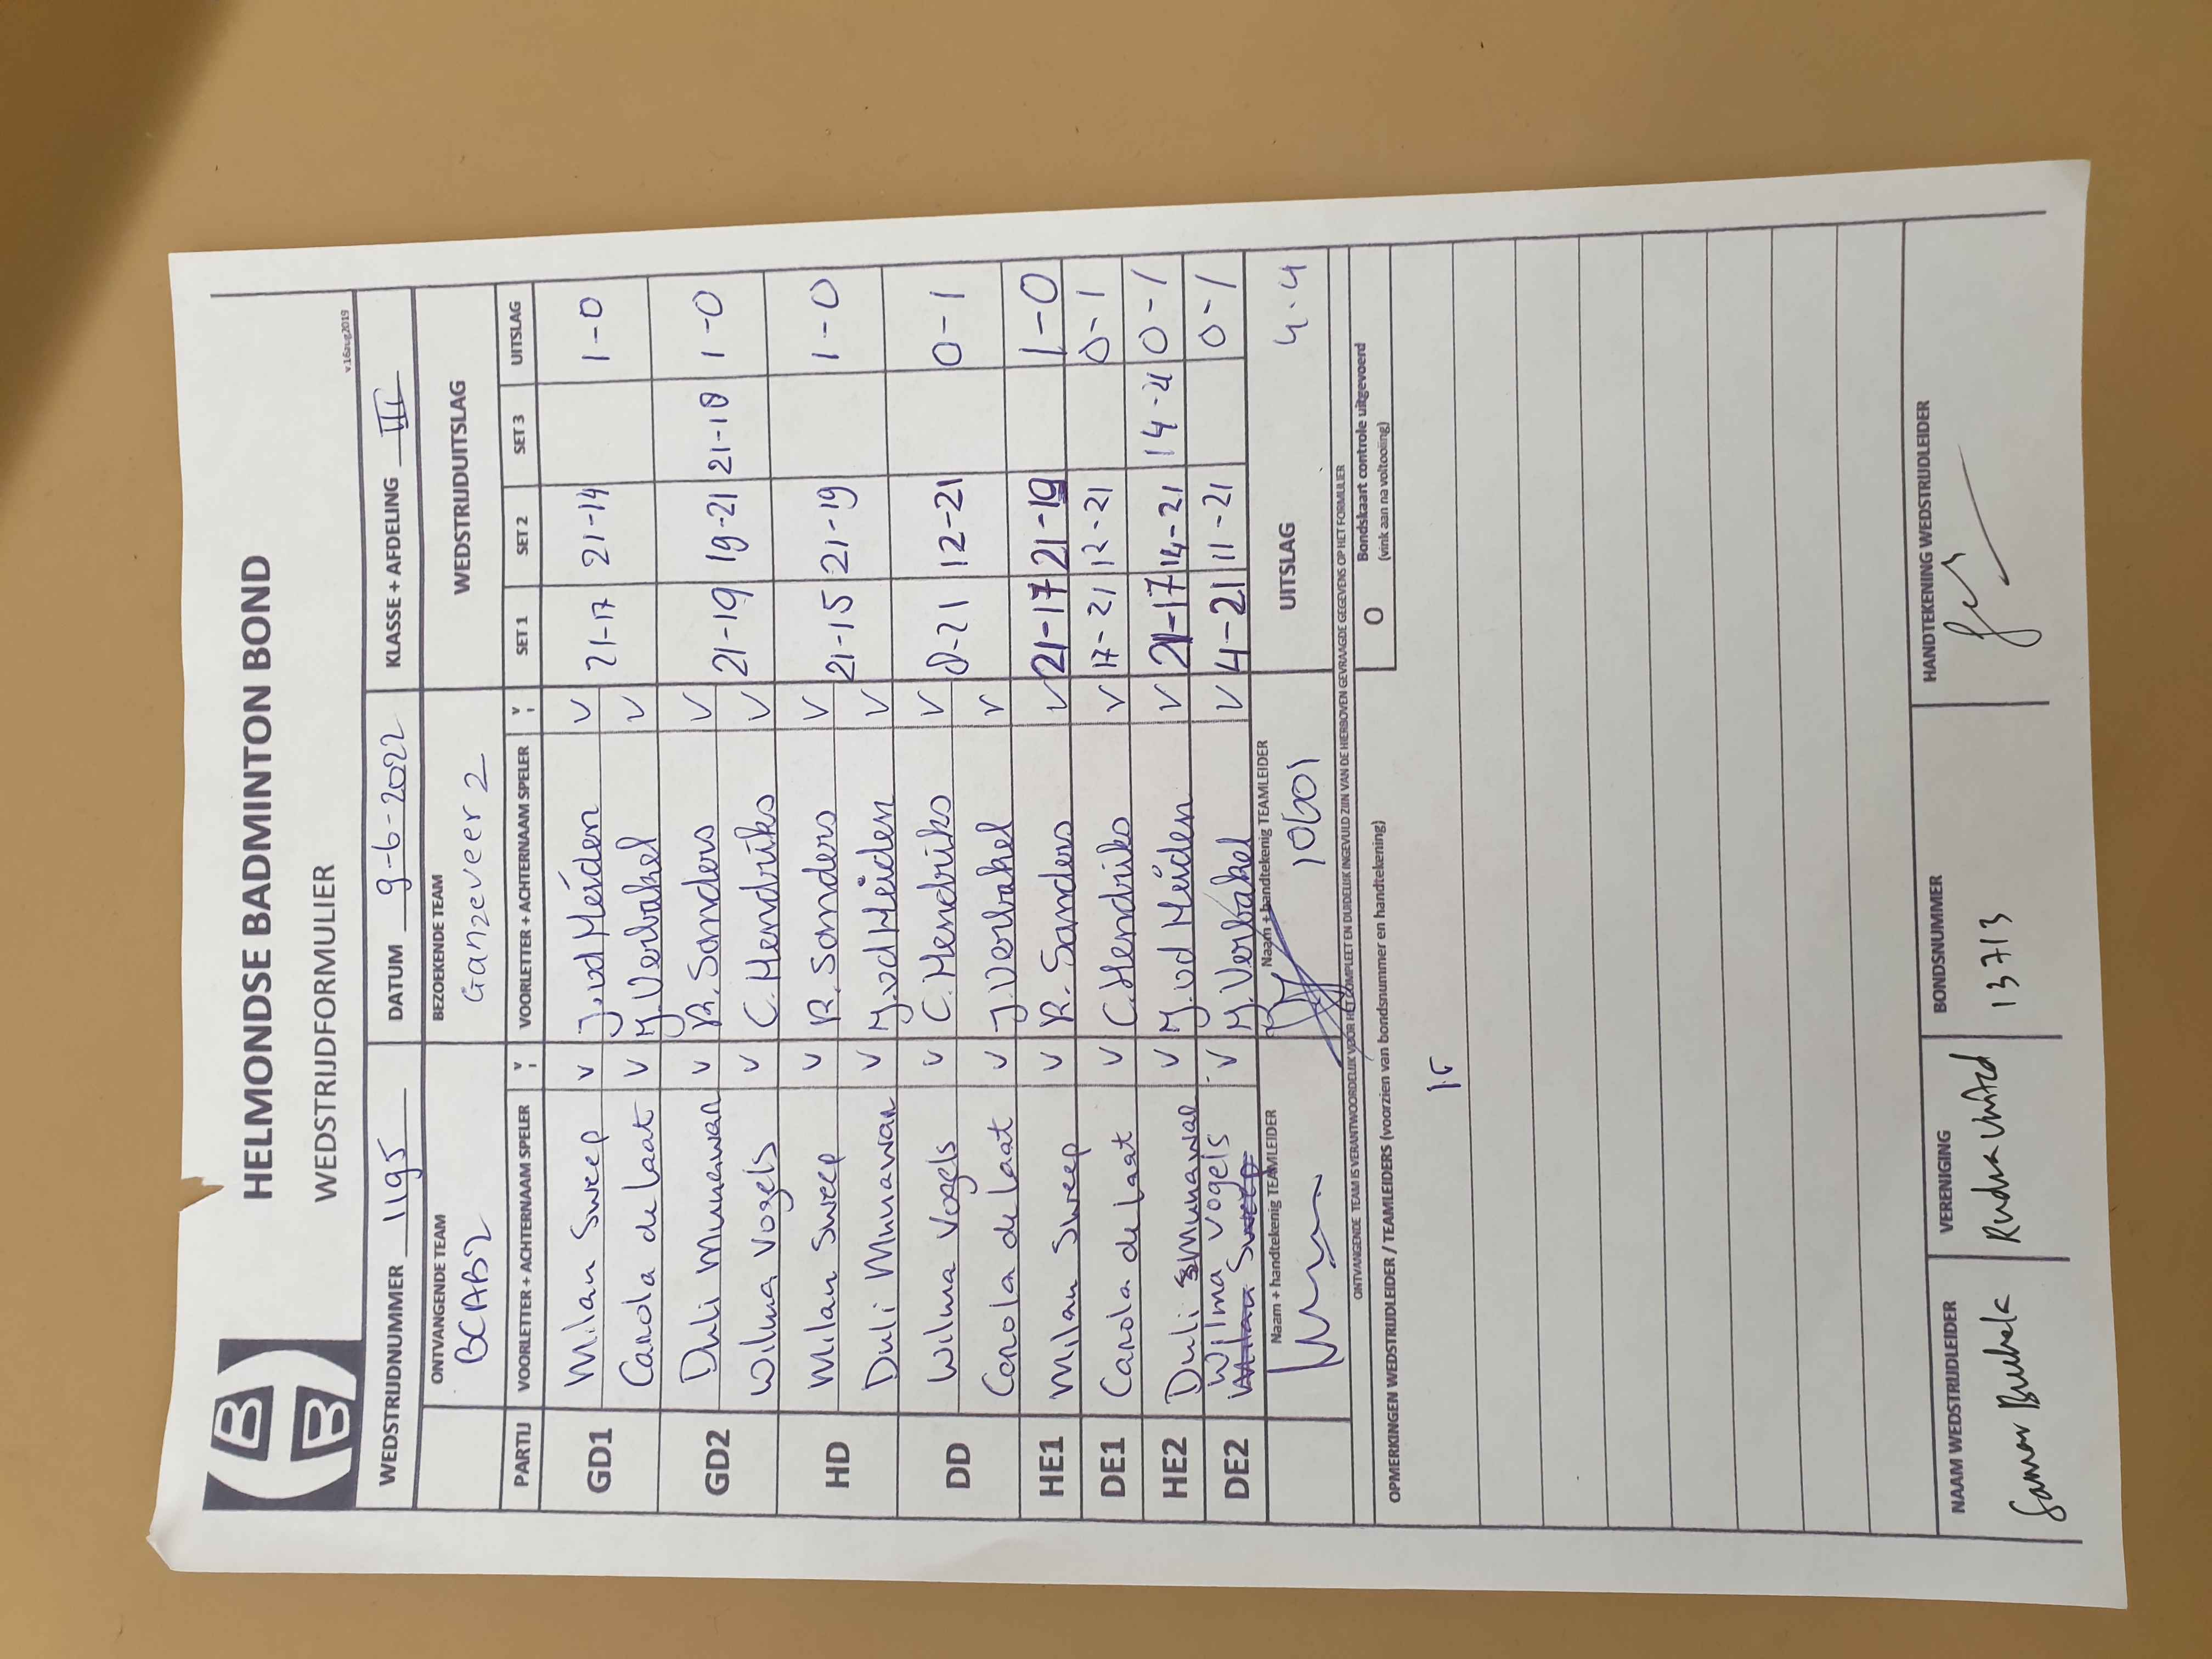 HELMONDSE BADMINTON BOND
WEDSTRIJDFORMULIER
v.16aug2019
WEDSTRIJDNUMMER 1195 DATUM 9-6-2022 KLASSE + AFDELING III
ONTVANGENDE TEAM BEZOEKENDE TEAM WEDSTRIJDUITSLAG
BCAB2 Ganzeveer 2
PARTIJ VOORLETTER + ACHTERNAAM SPELER V VOORLETTER + ACHTERNAAM SPELER V SET 1 SET 2 SET 3 UITSLAG
GD1 Milan Sweep V J. vd Meiden V 21-17 21-14 1-0
Carola de Laat V M. Verbakel V
GD2 Duli Munawar V R. Sanders V 21-19 19-21 21-18 1-0
Wilma Vogels V C. Hendriks V
HD Milan Sweep V R. Sanders V 21-15 21-19 1-0
Duli Munawar V J. vd Meiden V
DD Wilma Vogels V C. Hendriks V 8-21 12-21 0-1
Carola de Laat V J. Verbakel V
HE1 Milan Sweep V R. Sanders V 21-17 21-19 1-0
DE1 Carola de Laat V C. Hendriks V 17-21 12-21 0-1
HE2 Duli Munawar V J. vd Meiden V 21-17 14-21 14-21 0-1
DE2 Wilma Vogels V M. Verbakel V 4-21 11-21 0-1
Milan Sweep
Naam + handtekenig TEAMLEIDER Naam + handtekenig TEAMLEIDER UITSLAG 4-4
10601
ONTVANGENDE TEAM IS VERANTWOORDELIJK VOOR HET COMPLEET EN DUIDELIJK INGEVULD ZIJN VAN DE HIERBOVEN GEVRAAGDE GEGEVENS OP HET FORMULIER
O Bondskaart controle uitgevoerd
(vink aan na voltooiing)
OPMERKINGEN WEDSTRIJDLEIDER / TEAMLEIDERS (voorzien van bondsnummer en handtekening)
NAAM WEDSTRIJDLEIDER VERENIGING BONDSNUMMER HANDTEKENING WEDSTRIJDLEIDER
13713